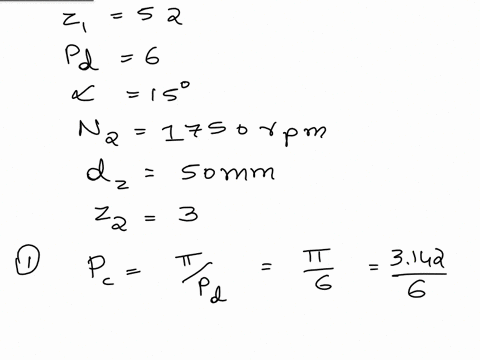 z₁ = 52
Pd = 6
α = 15°
N₂ = 1750 rpm
d₂ = 50mm
z₂ = 3
① Pc = π/Pd = π/6 = 3.142/6